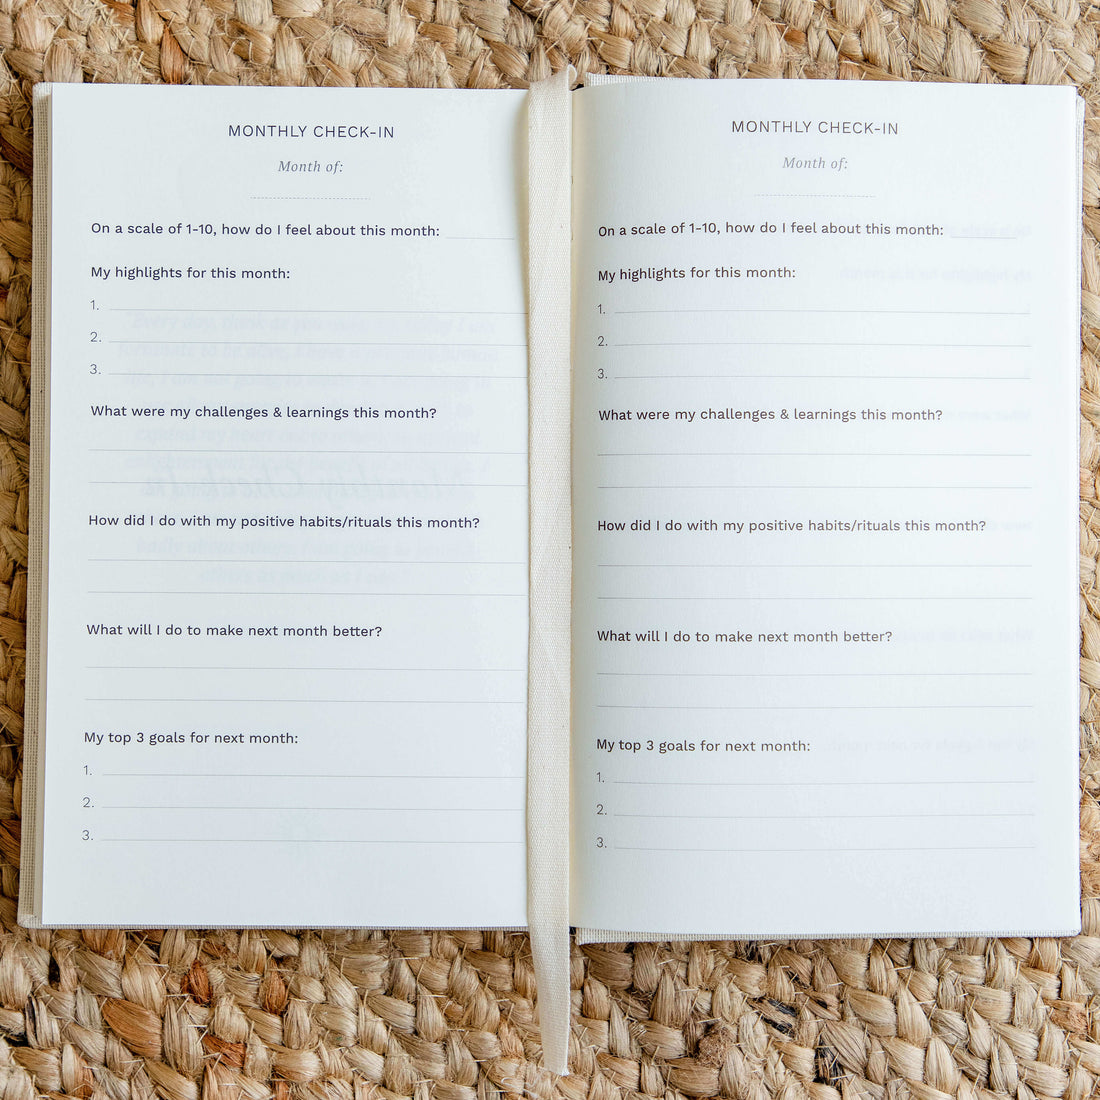 MONTHLY CHECK-IN
Month of:
On a scale of 1-10, how do I feel about this month:
My highlights for this month:
1.
2.
3.
What were my challenges & learnings this month?
How did I do with my positive habits/rituals this month?
What will I do to make next month better?
My top 3 goals for next month:
1.
2.
3.
MONTHLY CHECK-IN
Month of:
On a scale of 1-10, how do I feel about this month:
My highlights for this month:
1.
2.
3.
What were my challenges & learnings this month?
How did I do with my positive habits/rituals this month?
What will I do to make next month better?
My top 3 goals for next month:
1.
2.
3.